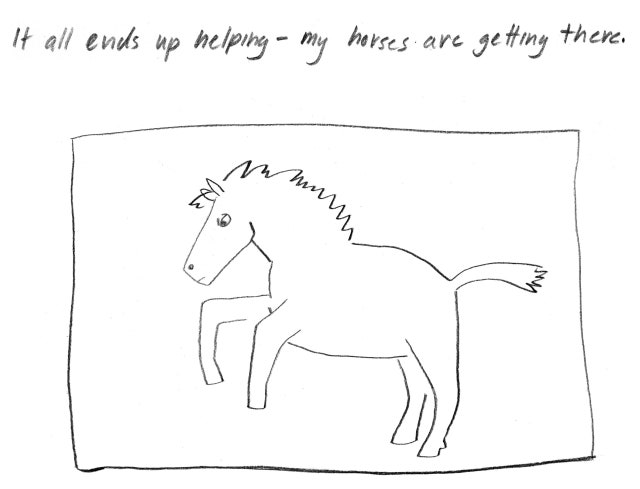 It all ends up helping - my horses are getting there.